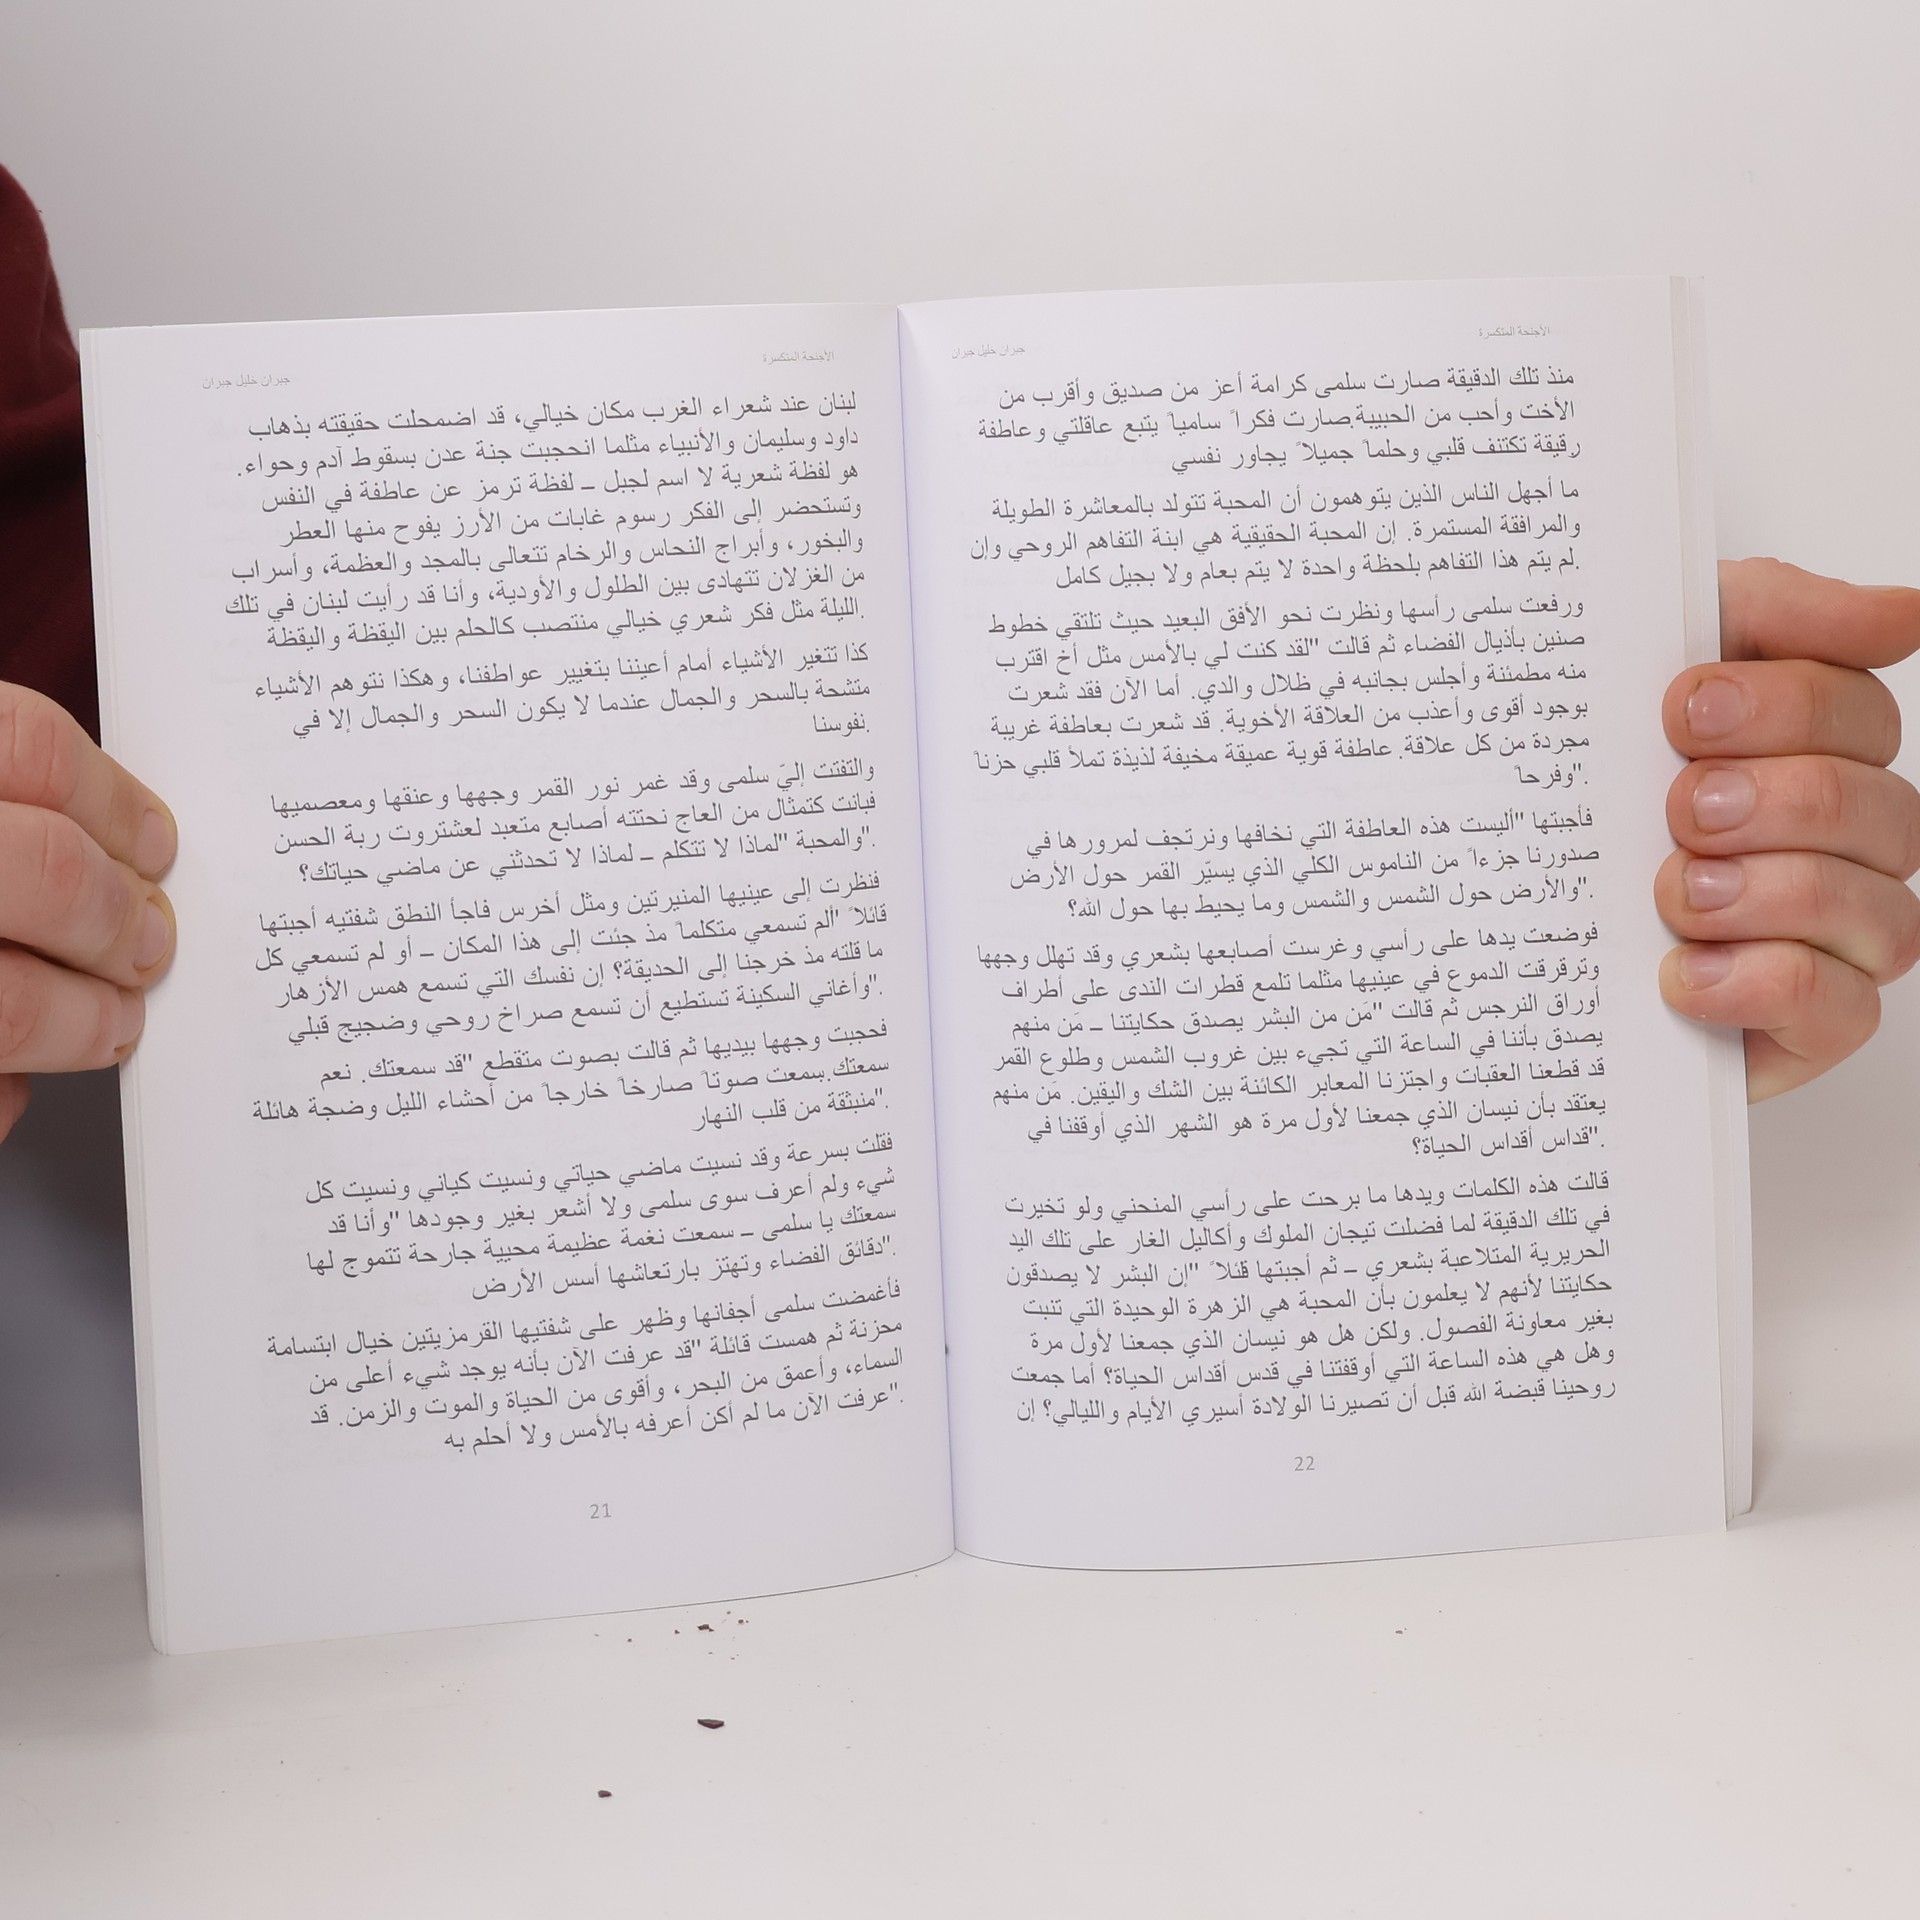 الأجنحة المتكسرة
جبران خليل جبران
لبنان عند شعراء الغرب مكان خيالي، قد اضمحلت حقيقته بذهاب
داود وسليمان والأنبياء مثلما انحجبت جنة عدن بسقوط آدم وحواء.
هو لفظة شعرية لا اسم لجبل ــ لفظة ترمز عن عاطفة في النفس
وتستحضر إلى الفكر رسوم غابات من الأرز يفوح منها العطر
والبخور، وأبراج النحاس والرخام تتعالى بالمجد والعظمة، وأسراب
من الغزلان تتهادى بين الطلول والأودية، وأنا قد رأيت لبنان في تلك
.الليلة مثل فكر شعري خيالي منتصب كالحلم بين اليقظة واليقظة
كذا تتغير الأشياء أمام أعيننا بتغيير عواطفنا، وهكذا نتوهم الأشياء
متشحة بالسحر والجمال عندما لا يكون السحر والجمال إلا في
.نفوسنا
والتفتت إليَ سلمى وقد غمر نور القمر وجهها وعنقها ومعصميها
فبانت كتمثال من العاج نحتته أصابع متعبد لعشتروت ربة الحسن
."والمحبة "لماذا لا تتكلم ــ لماذا لا تحدثني عن ماضي حياتك؟
فنظرت إلى عينيها المنيرتين ومثل أخرس فاجأ النطق شفتيه أجبتها
قائلاً "ألم تسمعي متكلماً مذ جئت إلى هذا المكان ــ أو لم تسمعي كل
ما قلته مذ خرجنا إلى الحديقة؟ إن نفسك التي تسمع همس الأزهار
."وأغاني السكينة تستطيع أن تسمع صراخ روحي وضجيج قبلي
فحجبت وجهها بيديها ثم قالت بصوت متقطع "قد سمعتك. نعم
سمعتك.سمعت صوتاً صارخاً خارجاً من أحشاء الليل وضجة هائلة
."منبثقة من قلب النهار
فقلت بسرعة وقد نسيت ماضي حياتي ونسيت كياني ونسيت كل
شيء ولم أعرف سوى سلمى ولا أشعر بغير وجودها "وأنا قد
سمعتك يا سلمى ــ سمعت نغمة عظيمة محيية جارحة تتموج لها
."دقائق الفضاء وتهتز بارتعاشها أسس الأرض
فأغمضت سلمى أجفانها وظهر على شفتيها القرمزيتين خيال ابتسامة
محزنة ثم همست قائلة "قد عرفت الآن بأنه يوجد شيء أعلى من
السماء، وأعمق من البحر، وأقوى من الحياة والموت والزمن. قد
."عرفت الآن ما لم أكن أعرفه بالأمس ولا أحلم به
21
الأجنحة المتكسرة
جبران خليل جبران
منذ تلك الدقيقة صارت سلمى كرامة أعز من صديق وأقرب من
الأخت وأحب من الحبيبة.صارت فكراً سامياً يتبع عاقلتي وعاطفة
رقيقة تكتنف قلبي وحلماً جميلاً يجاور نفسي
ما أجهل الناس الذين يتوهمون أن المحبة تتولد بالمعاشرة الطويلة
والمرافقة المستمرة. إن المحبة الحقيقية هي ابنة التفاهم الروحي وإن
.لم يتم هذا التفاهم بلحظة واحدة لا يتم بعام ولا بجيل كامل
ورفعت سلمى رأسها ونظرت نحو الأفق البعيد حيث تلتقي خطوط
صنين بأذيال الفضاء ثم قالت "لقد كنت لي بالأمس مثل أخ اقترب
منه مطمئنة وأجلس بجانبه في ظلال والدي. أما الآن فقد شعرت
بوجود أقوى وأعذب من العلاقة الأخوية. قد شعرت بعاطفة غريبة
مجردة من كل علاقة. عاطفة قوية عميقة مخيفة لذيذة تملأ قلبي حزناً
."وفرحاً
فأجبتها "أليست هذه العاطفة التي نخافها ونرتجف لمرورها في
صدورنا جزءاً من الناموس الكلي الذي يسيّر القمر حول الأرض
."والأرض حول الشمس والشمس وما يحيط بها حول الله؟
فوضعت يدها على رأسي وغرست أصابعها بشعري وقد تهلل وجهها
وترقرقت الدموع في عينيها مثلما تلمع قطرات الندى على أطراف
أوراق النرجس ثم قالت "مَن من البشر يصدق حكايتنا ــ مَن منهم
يصدق بأننا في الساعة التي تجيء بين غروب الشمس وطلوع القمر
قد قطعنا العقبات واجتزنا المعابر الكائنة بين الشك واليقين. مَن منهم
يعتقد بأن نيسان الذي جمعنا لأول مرة هو الشهر الذي أوقفنا في
."قداس أقداس الحياة؟
قالت هذه الكلمات ويدها ما برحت على رأسي المنحني ولو تخيرت
في تلك الدقيقة لما فضلت تيجان الملوك وأكاليل الغار على تلك اليد
الحريرية المتلاعبة بشعري ــ ثم أجبتها قائلاً "إن البشر لا يصدقون
حكايتنا لأنهم لا يعلمون بأن المحبة هي الزهرة الوحيدة التي تنبت
بغير معاونة الفصول. ولكن هل هو نيسان الذي جمعنا لأول مرة
وهل هي هذه الساعة التي أوقفتنا في قدس أقداس الحياة؟ أما جمعت
روحينا قبضة الله قبل أن تصيرنا الولادة أسيري الأيام والليالي؟ إن
22